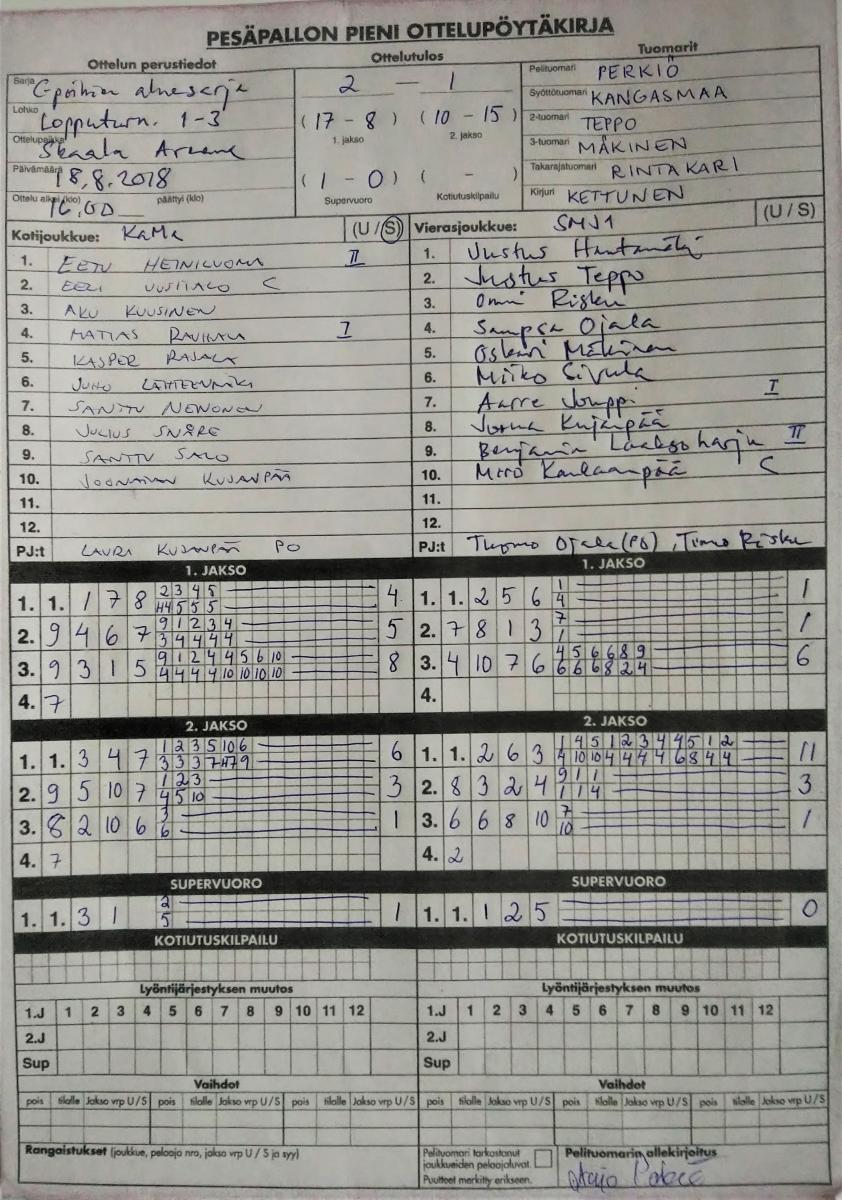 PESÄPALLON PIENI OTTELUPÖYTÄKIRJA
Ottelun perustiedot Ottelutulos Tuomarit
Sarja C-poikien aluesarja 2 — 1 Pelituomari PERKIÖ
Lohko Lopputurn. 1-3 (17 - 8) (10 - 15) Syöttötuomari KANGASMAA
1. jakso 2. jakso 2-tuomari TEPPO
Ottelupaikka Skaala Areena 3-tuomari MÄKINEN
Päivämäärä 18.8.2018 (1 - 0) ( - ) Takarajatuomari RINTAKARI
Ottelu alkoi (klo) 16.00 päättyi (klo) Supervuoro Kotiutuskilpailu Kirjuri KETTUNEN
Kotijoukkue: KaMa (U / S) Vierasjoukkue: SMJ1 (U / S)
1. EETU HEINILUOMA II 1. Justus
2. EELI UUSITALO C 2. Justus Teppo
3. AKU KUUSINEN 3. Onni Risku
4. MATIAS I 4. Sampsa Ojala
5. KASPER RAJALA 5. Oskari Mäkinen
6. JUHO LÄHTEENMÄKI 6. Miiko Sivula
7. SANTTU NEVONEN 7. Aarre Jouppi I
8. JULIUS SNÅRE 8. Joona Kujanpää
9. SANTTU SALO 9. Benjamin Laaksoharju II
10. JOONATAN KUJANPÄÄ 10. Miro C
11. 11.
12. 12.
PJ:t LAURI KUJANPÄÄ PO PJ:t Tuomo Ojala (PO), Timo Risku
1. JAKSO 1. JAKSO
2 3 4 5 1
1. 1. 1 7 8 4 5 5 5 4 1. 1. 2 5 6 4 1
9 1 2 3 4 7
2. 9 4 6 7 3 4 4 4 4 5 2. 7 8 1 3 1 1
9 1 2 4 4 5 6 10 4 5 6 6 8 9
3. 9 3 1 5 4 4 4 4 10 10 10 10 8 3. 4 10 7 6 6 6 6 8 2 4 6
4. 7 4.
2. JAKSO 2. JAKSO
1 2 3 5 10 6 1 4 5 1 2 3 4 4 5 1 2
1. 1. 3 4 7 3 3 3 7 7 9 6 1. 1. 2 6 3 4 10 10 4 4 4 4 6 8 4 4 11
1 2 3 9 1 1
2. 9 5 10 7 4 5 10 3 2. 8 3 2 4 1 1 4 3
3 7
3. 8 2 10 6 6 1 3. 6 6 8 10 10 1
4. 7 4. 2
SUPERVUORO SUPERVUORO
2
1. 1. 3 1 5 1 1. 1. 1 2 5 0
KOTIUTUSKILPAILU KOTIUTUSKILPAILU
Lyöntijärjestyksen muutos Lyöntijärjestyksen muutos
1.J 1 2 3 4 5 6 7 8 9 10 11 12 1.J 1 2 3 4 5 6 7 8 9 10 11 12
2.J 2.J
Sup Sup
Vaihdot Vaihdot
pois tilalle Jakso vrp U / S pois tilalle Jakso vrp U / S pois tilalle Jakso vrp U / S pois tilalle Jakso vrp U / S pois tilalle Jakso vrp U / S pois tilalle Jakso vrp U / S
Rangaistukset (joukkue, pelaaja nro, jakso vrp U / S ja syy) Pelituomari tarkastanut Pelituomarin allekirjoitus
joukkueiden pelaajaluvat.
Puutteet merkitty erikseen.